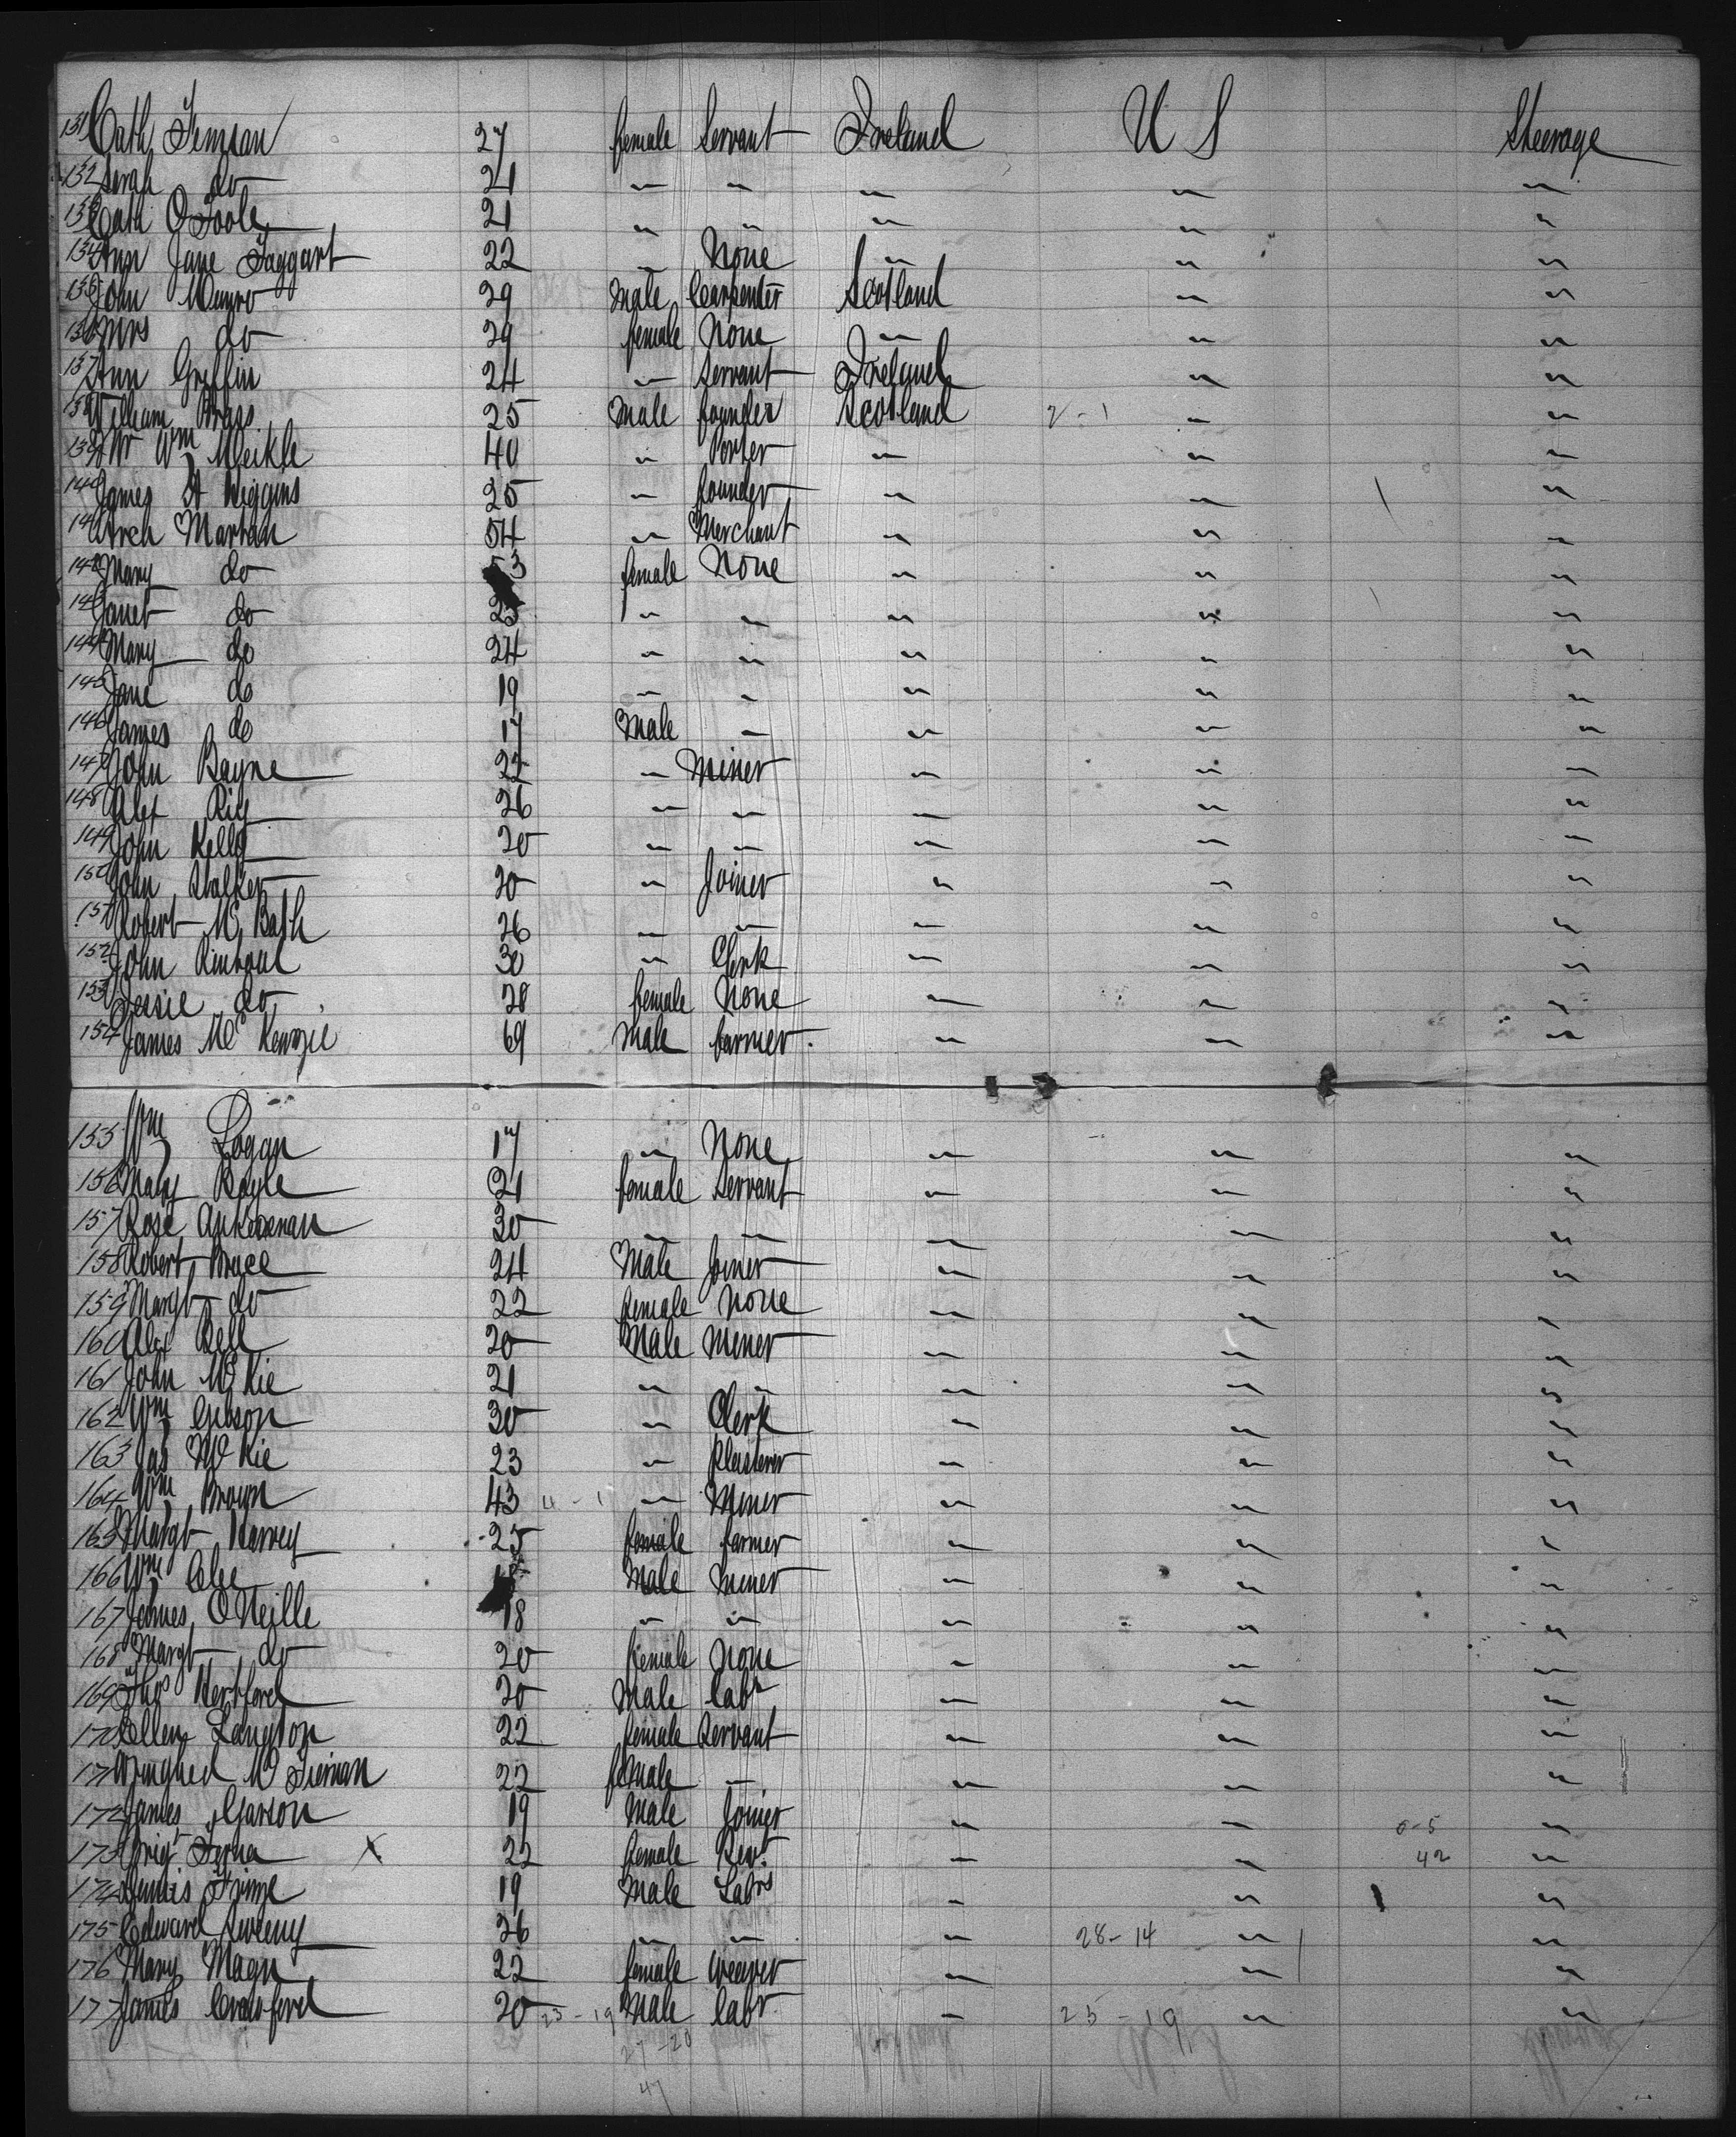 131 Cath Tiernan 27 female Servant Ireland U S Steerage
132 Sarah do 21 " " " " "
133 Cath O'Toole 21 " " " " "
134 Ann Jane Taggart 22 " None " " "
135 John Munro 29 Male Carpenter Scotland " "
136 Mrs do 29 female None " " "
137 Ann Griffin 24 " Servant Ireland " "
138 William Brass 25 Male founder Scotland 2-1 " "
139 Wm Meikle 40 " Porter " " "
140 James A Higgins 25 " founder " " "
141 Arch Martan 54 " Merchant " " "
142 Mary do 53 female None " " "
143 Janet do 23 " " " " "
144 Mary do 24 " " " " "
145 Jane do 19 " " " " "
146 James do 17 Male " " " "
147 John Bayne 22 " miner " " "
148 Alex Rig 26 " " " " "
149 John Kelly 20 " " " " "
150 John Stalker 20 " Joiner " " "
151 Robert Mc Bath 26 " " " " "
152 John 30 " Clerk " " "
153 Jessie do 28 female None " " "
154 James Mc Kenzie 69 Male farmer " " "
155 Wm Logan 17 " None " " "
156 Mary Boyle 21 female Servant " " "
157 Rose 30 " " " " "
158 Robert Brace 24 Male Joiner " " "
159 Margt do 22 female None " " "
160 Alex Bell 20 Male Miner " " "
161 John Mc Kie 21 " " " " "
162 Wm Gibson 30 " Clerk " " "
163 Jas Mc Kie 23 " Plasterer " " "
164 Wm Brown 43 4-1 " Miner " " "
165 Margt Harvey 25 female farmer " " "
166 Wm Male miner " " "
167 James O'Neille 18 " " " " "
168 Margt do 20 female None " " "
169 Thos Hertford 20 Male labr " " "
170 Ellen Langton 22 female Servant " " "
171 Mc Tiernan 22 female " " " "
172 James Garson 19 Male Joiner " 0-5 "
173 Brigt X 22 female Sevt " " 42 "
174 19 Male Labr " " "
175 Edward Sweeny 26 " " " 28-14 " "
176 Mary Magn 22 female weaver " " "
177 James 20 23-19 Male labr " 25-19 " "
27-20
47